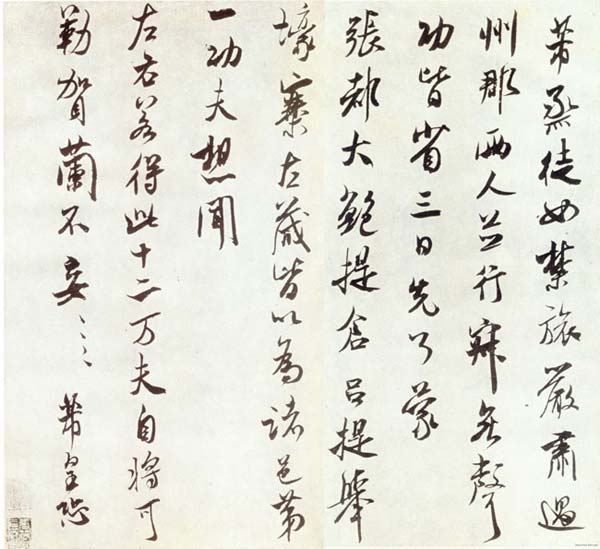 芾烝徒如禁旅嚴肅過
州郡兩人並行寂無聲
功皆省三日先了蒙
張都大鮑提倉呂提舉
壕寨左藏皆以為諸邑第
一功夫想聞
左右若得此十二万夫自將可
勒賀蘭不妄〻〻芾皇恐